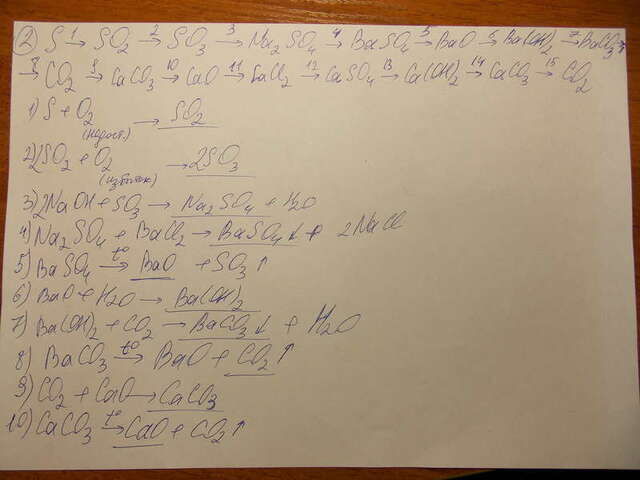 ② S ¹→ SO₂ ²→ SO₃ ³→ Na₂SO₄ ⁴→ BaSO₄ ⁵→ BaO ⁶→ Ba(OH)₂ ⁷→ BaCO₃ ⁸→
⁸→ CO₂ ⁹→ CaCO₃ ¹⁰→ CaO ¹¹→ CaCl₂ ¹²→ CaSO₄ ¹³→ Ca(OH)₂ ¹⁴→ CaCO₃ ¹⁵→ CO₂
1) S + O₂ (недост.) → SO₂
2) 2SO₂ + O₂ (избыток) → 2SO₃
3) 2NaOH + SO₃ → Na₂SO₄ + H₂O
4) Na₂SO₄ + BaCl₂ → BaSO₄↓ + 2NaCl
5) BaSO₄ t°→ BaO + SO₃↑
6) BaO + H₂O → Ba(OH)₂
7) Ba(OH)₂ + CO₂ → BaCO₃↓ + H₂O
8) BaCO₃ t°→ BaO + CO₂↑
9) CO₂ + CaO → CaCO₃
10) CaCO₃ t°→ CaO + CO₂↑